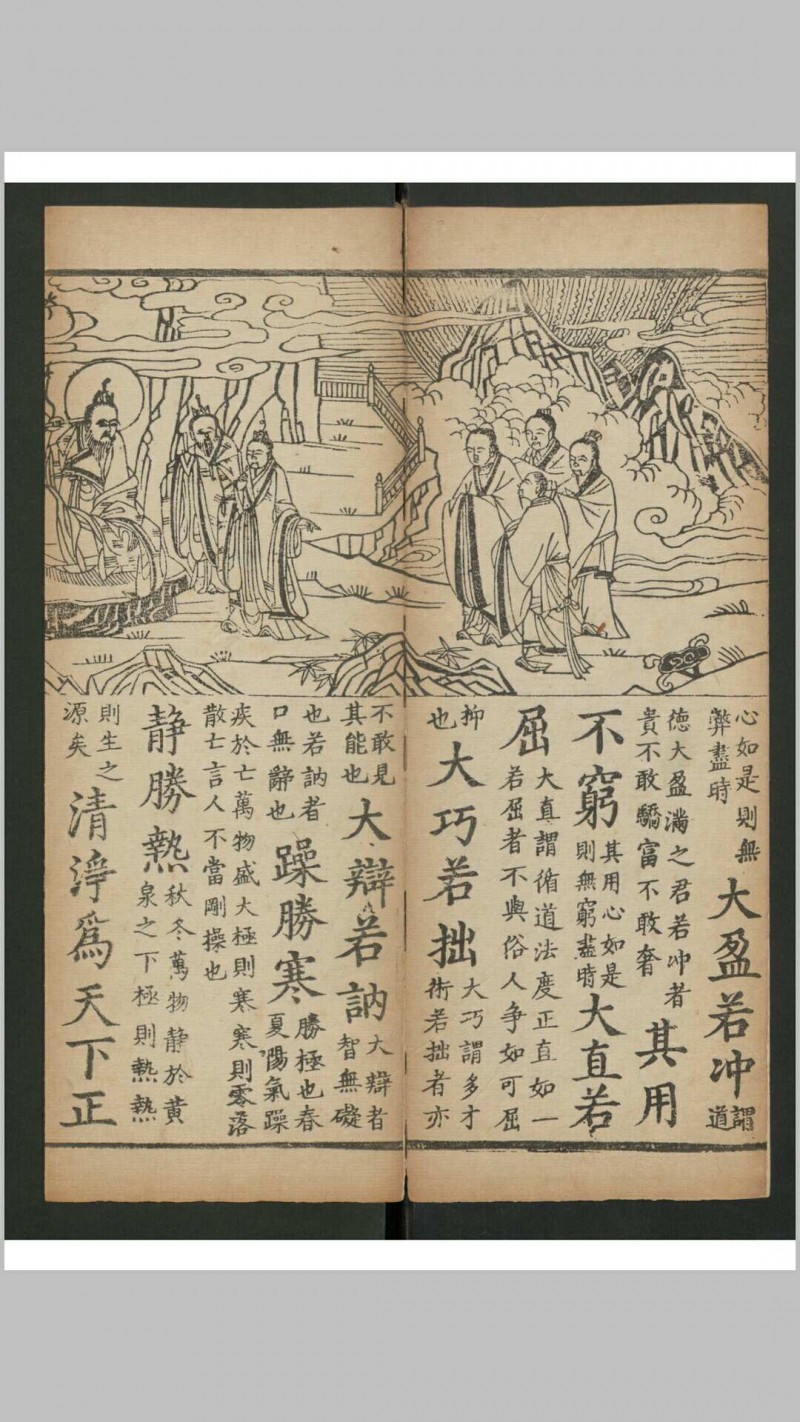 心如是則無弊盡時大盈若冲謂道
德大盈滿之君若冲者貴不敢驕富不敢奢其用
不窮其用心如是則無窮盡時大直若
屈大直謂循道法度正直如一若屈者不與俗人争如可屈
抑也大巧若拙大巧謂多才術若拙者亦
不敢見其能也大辯若訥大辯者智無礙
也若訥者口無辭也躁勝寒勝極也春夏陽氣躁
疾於亡萬物盛大極則寒寒則零落散士言人不當剛操也
静勝熱秋冬萬物静於黄泉之下極則熱熱
則生之源矣清淨爲天下正